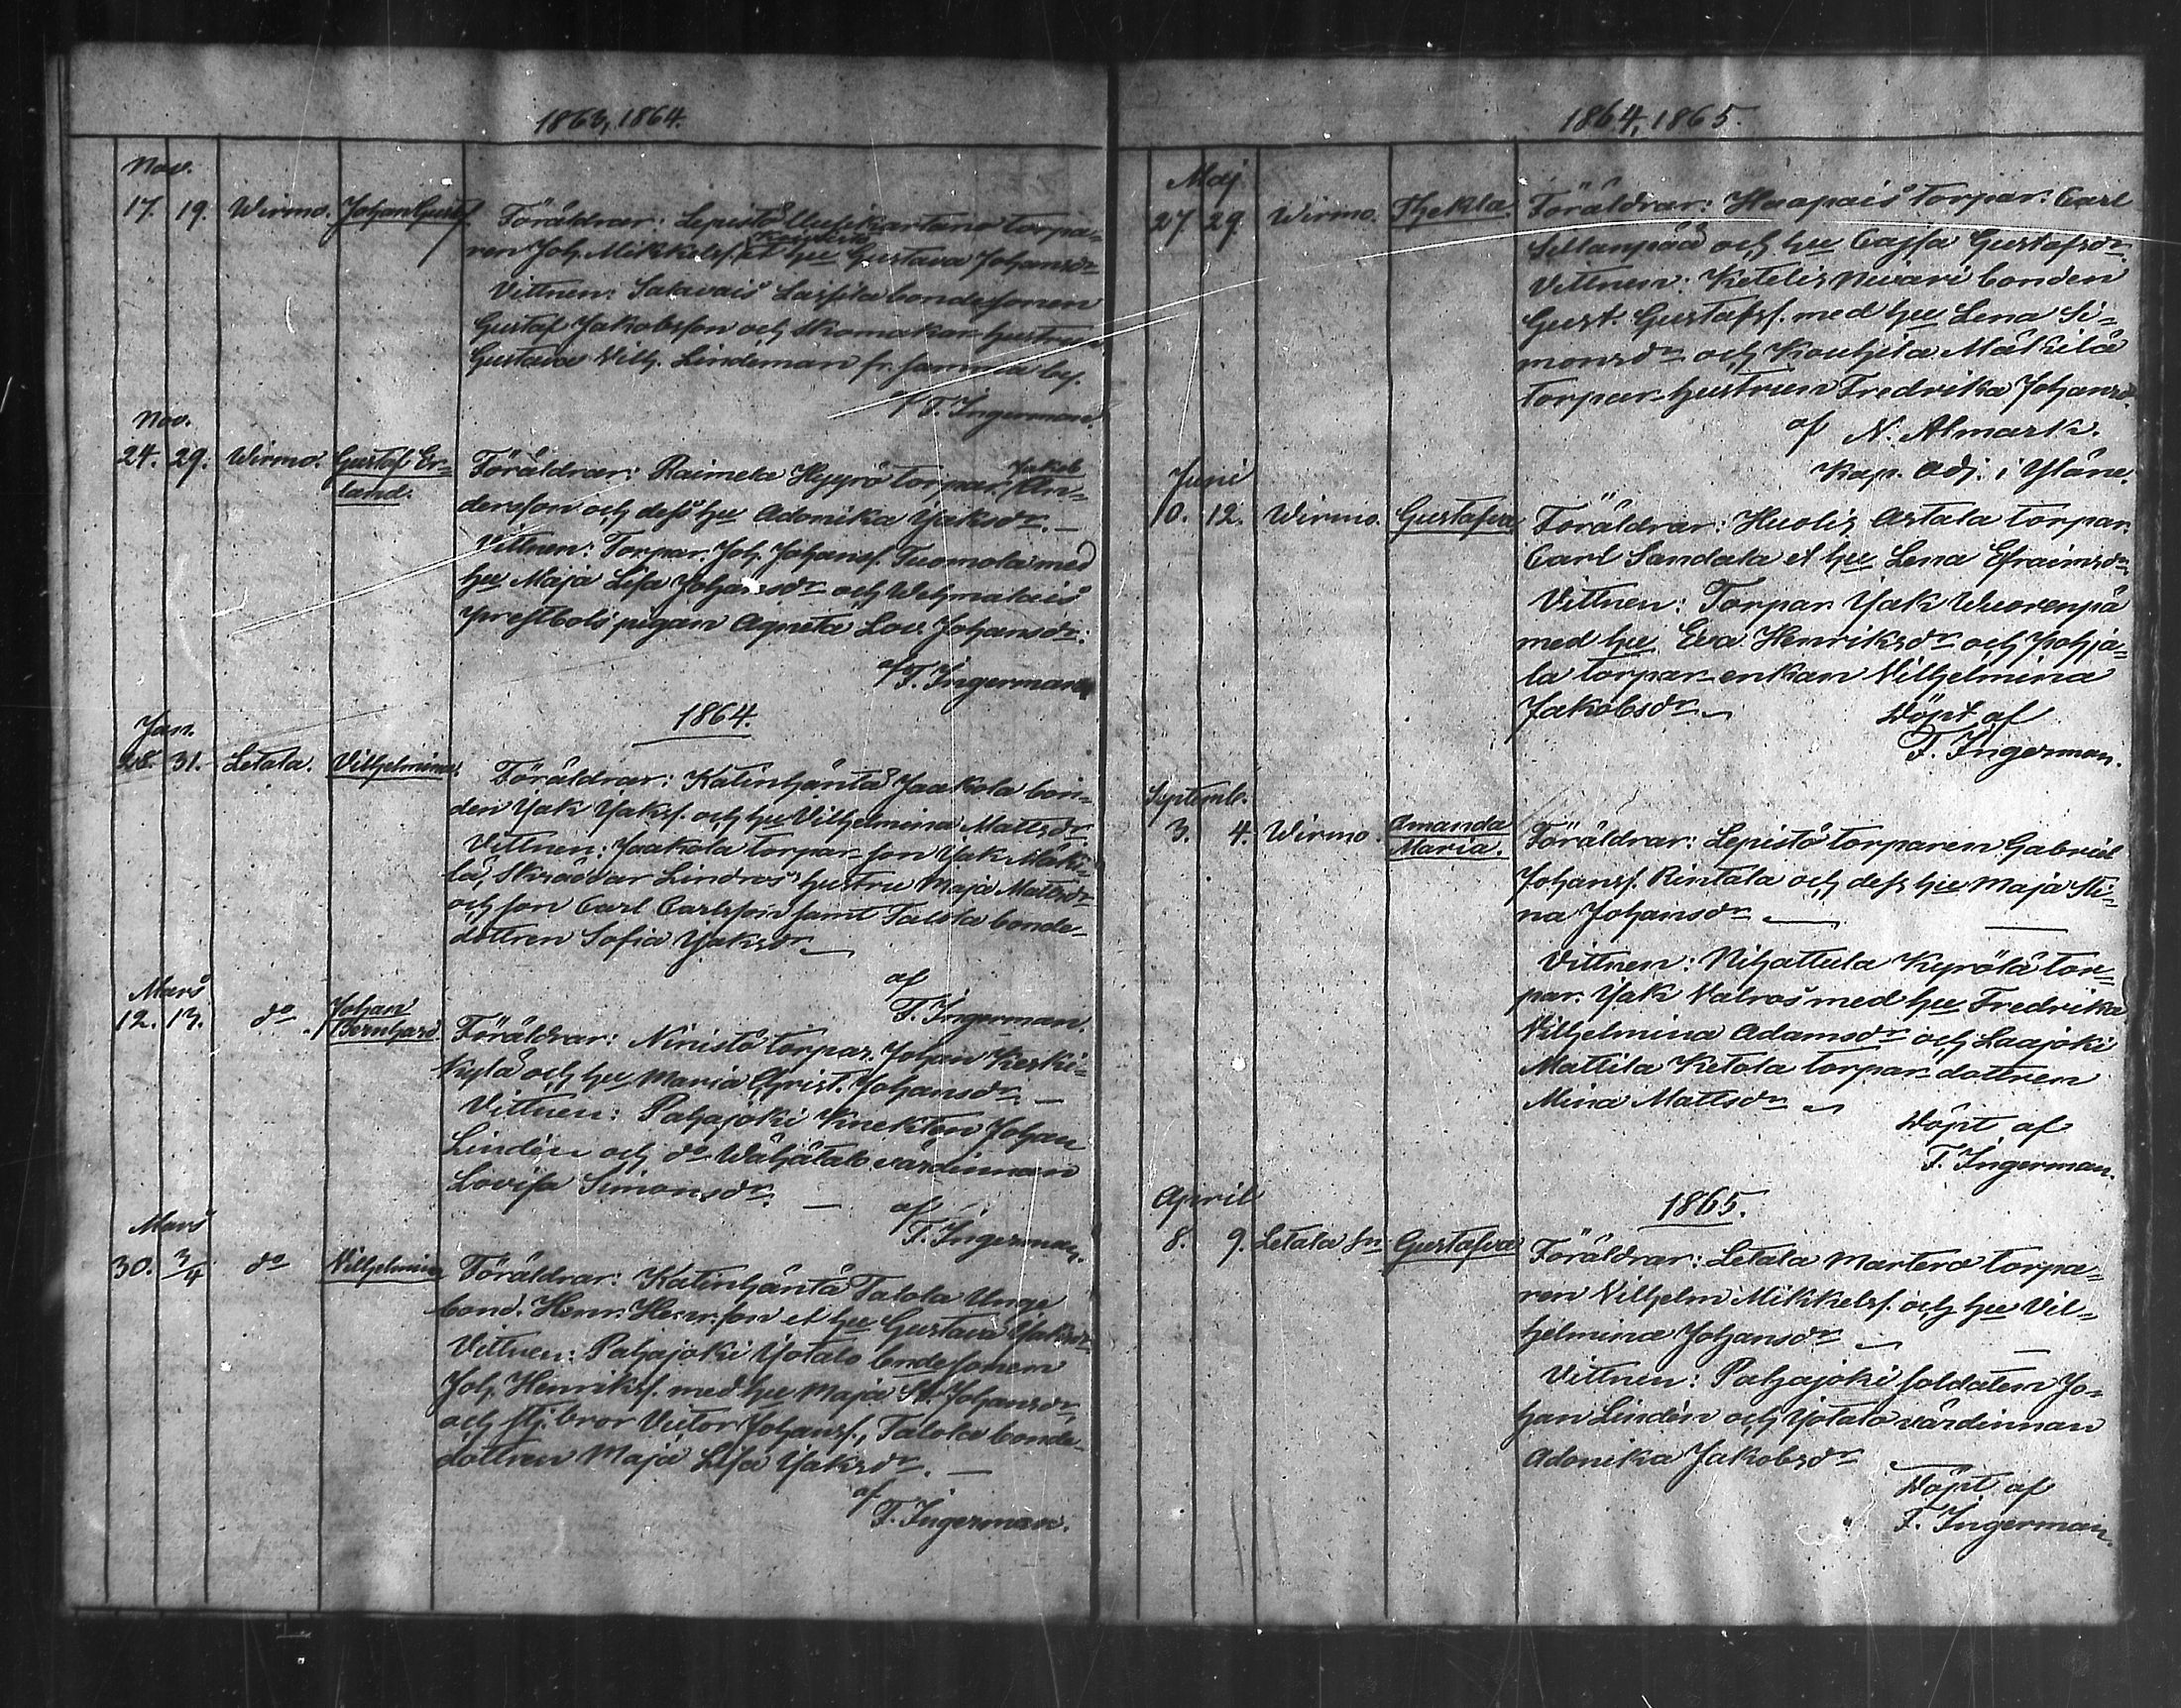 1863, 1864.
Nov.
17. 19. Wirmo. Johan Gustaf
Föräldrar: Lepistö Uusikartano torpa-
ren Joh. Mikkelsf. et hu Gustava Johansdr
Vittnen: Salavais Lassila bondesonen
Gustaf Jakobsson och skomakar hustrun
Gustava Vilh. Lindeman fr. samma by.
af F. Ingerman.
Nov.
24. 29. Wirmo. Gustaf Er-
land.
Föräldrar: Raimela Hyyrö torpar. Jakob An-
dersson och dess hu Adonika Jaksdr. —
Vittnen: Torpar. Joh. Johansf. Tuomola med
hu Maja Lisa Johansdr och Wehmalais
prestbols pigan Agneta Lov. Johansdr.
af F. Ingerman
1864.
Jan.
28. 31. Letala. Vilhelmina.
Föräldrar: Katinhäntä Jaakola bon-
den Jak Jaksf. och hu Vilhelmina Mattsdr.
Vittnen: Jaakola torpar-son Jak Mäki-
lä, Skräddar Lindros hustru Maja Mattsdr
och son Carl Carlsson samt Talola bonde-
dottren Sofia Jaksdr —
af
F. Ingerman.
Mars
12. 13. do Johan
Bernhard.
Föräldrar: Ninistö torpar. Johan Keski-
Kylä och hu Maria Christ. Johansdr. —
Vittnen: Pahajoki Knekten Johan
Lindén och do Wähätalo värdinnan
Lovisa Simonsdr. —
af
F. Ingerman.
Mars
30. 3/4 do Vilhelmina
Föräldrar: Katinhäntä Talola Unge
bond. Henr. Henr.son et hu Gustava Jaksdr
Vittnen: Pahajoki Yotalo bondesonen
Joh. Henriksf. med hu Maja St. Johansdr
och stj.bror Victor Johansf., Talola bonde-
dottren Maja Lisa Jaksdr. —
af
F. Ingerman.
1864, 1865.
Maj
27. 29. Wirmo. Thekla.
Föräldrar: Haapais torpar. Carl
Sillanpää och hu Cajsa Gustafsdr.
Vittnen: Ketelis Nuari bonden
Gust. Gustafsf. med hu Lena Si-
monsdr och Kouhela Mäkilä
torpar-hustrun Fredrika Johansd.
af N. Almark.
Kap. Adj. i Yläne.
Juni
10. 12. Wirmo. Gustafva
Föräldrar: Huolis Astala torpar.
Carl Sandala et hu Lena Efraimsdr.
Vittnen: Torpar. Jak Wuorenpä
med hu Eva Henriksdr och Pohja-
la torpar-enkan Vilhelmina
Jakobsdr —
Döpt af
F. Ingerman.
Septemb.
3. 4. Wirmo. Amanda
Maria.
Föräldrar: Lepistö torparen Gabriel
Johansf. Rintala och dess hu Maja Sti-
na Johansdr —
Vittnen: Nihattula Kyrölä tor-
par. Jak Valros med hu Fredrika
Vilhelmina Adamsdr och Laajoki
Mattila Ketola torpar-dottren
Mina Mattsdr —
Döpt af
F. Ingerman.
1865.
April
8. 9. Letala sn Gustafva
Föräldrar: Letala Martero torpa-
ren Vilhelm Mikkelsf. och hu Vil-
helmina Johansdr —
Vittnen: Pahajoki soldaten Jo-
han Lindén och Yotalo värdinnan
Adonika Jakobsdr
Döpt af
F. Ingerman.